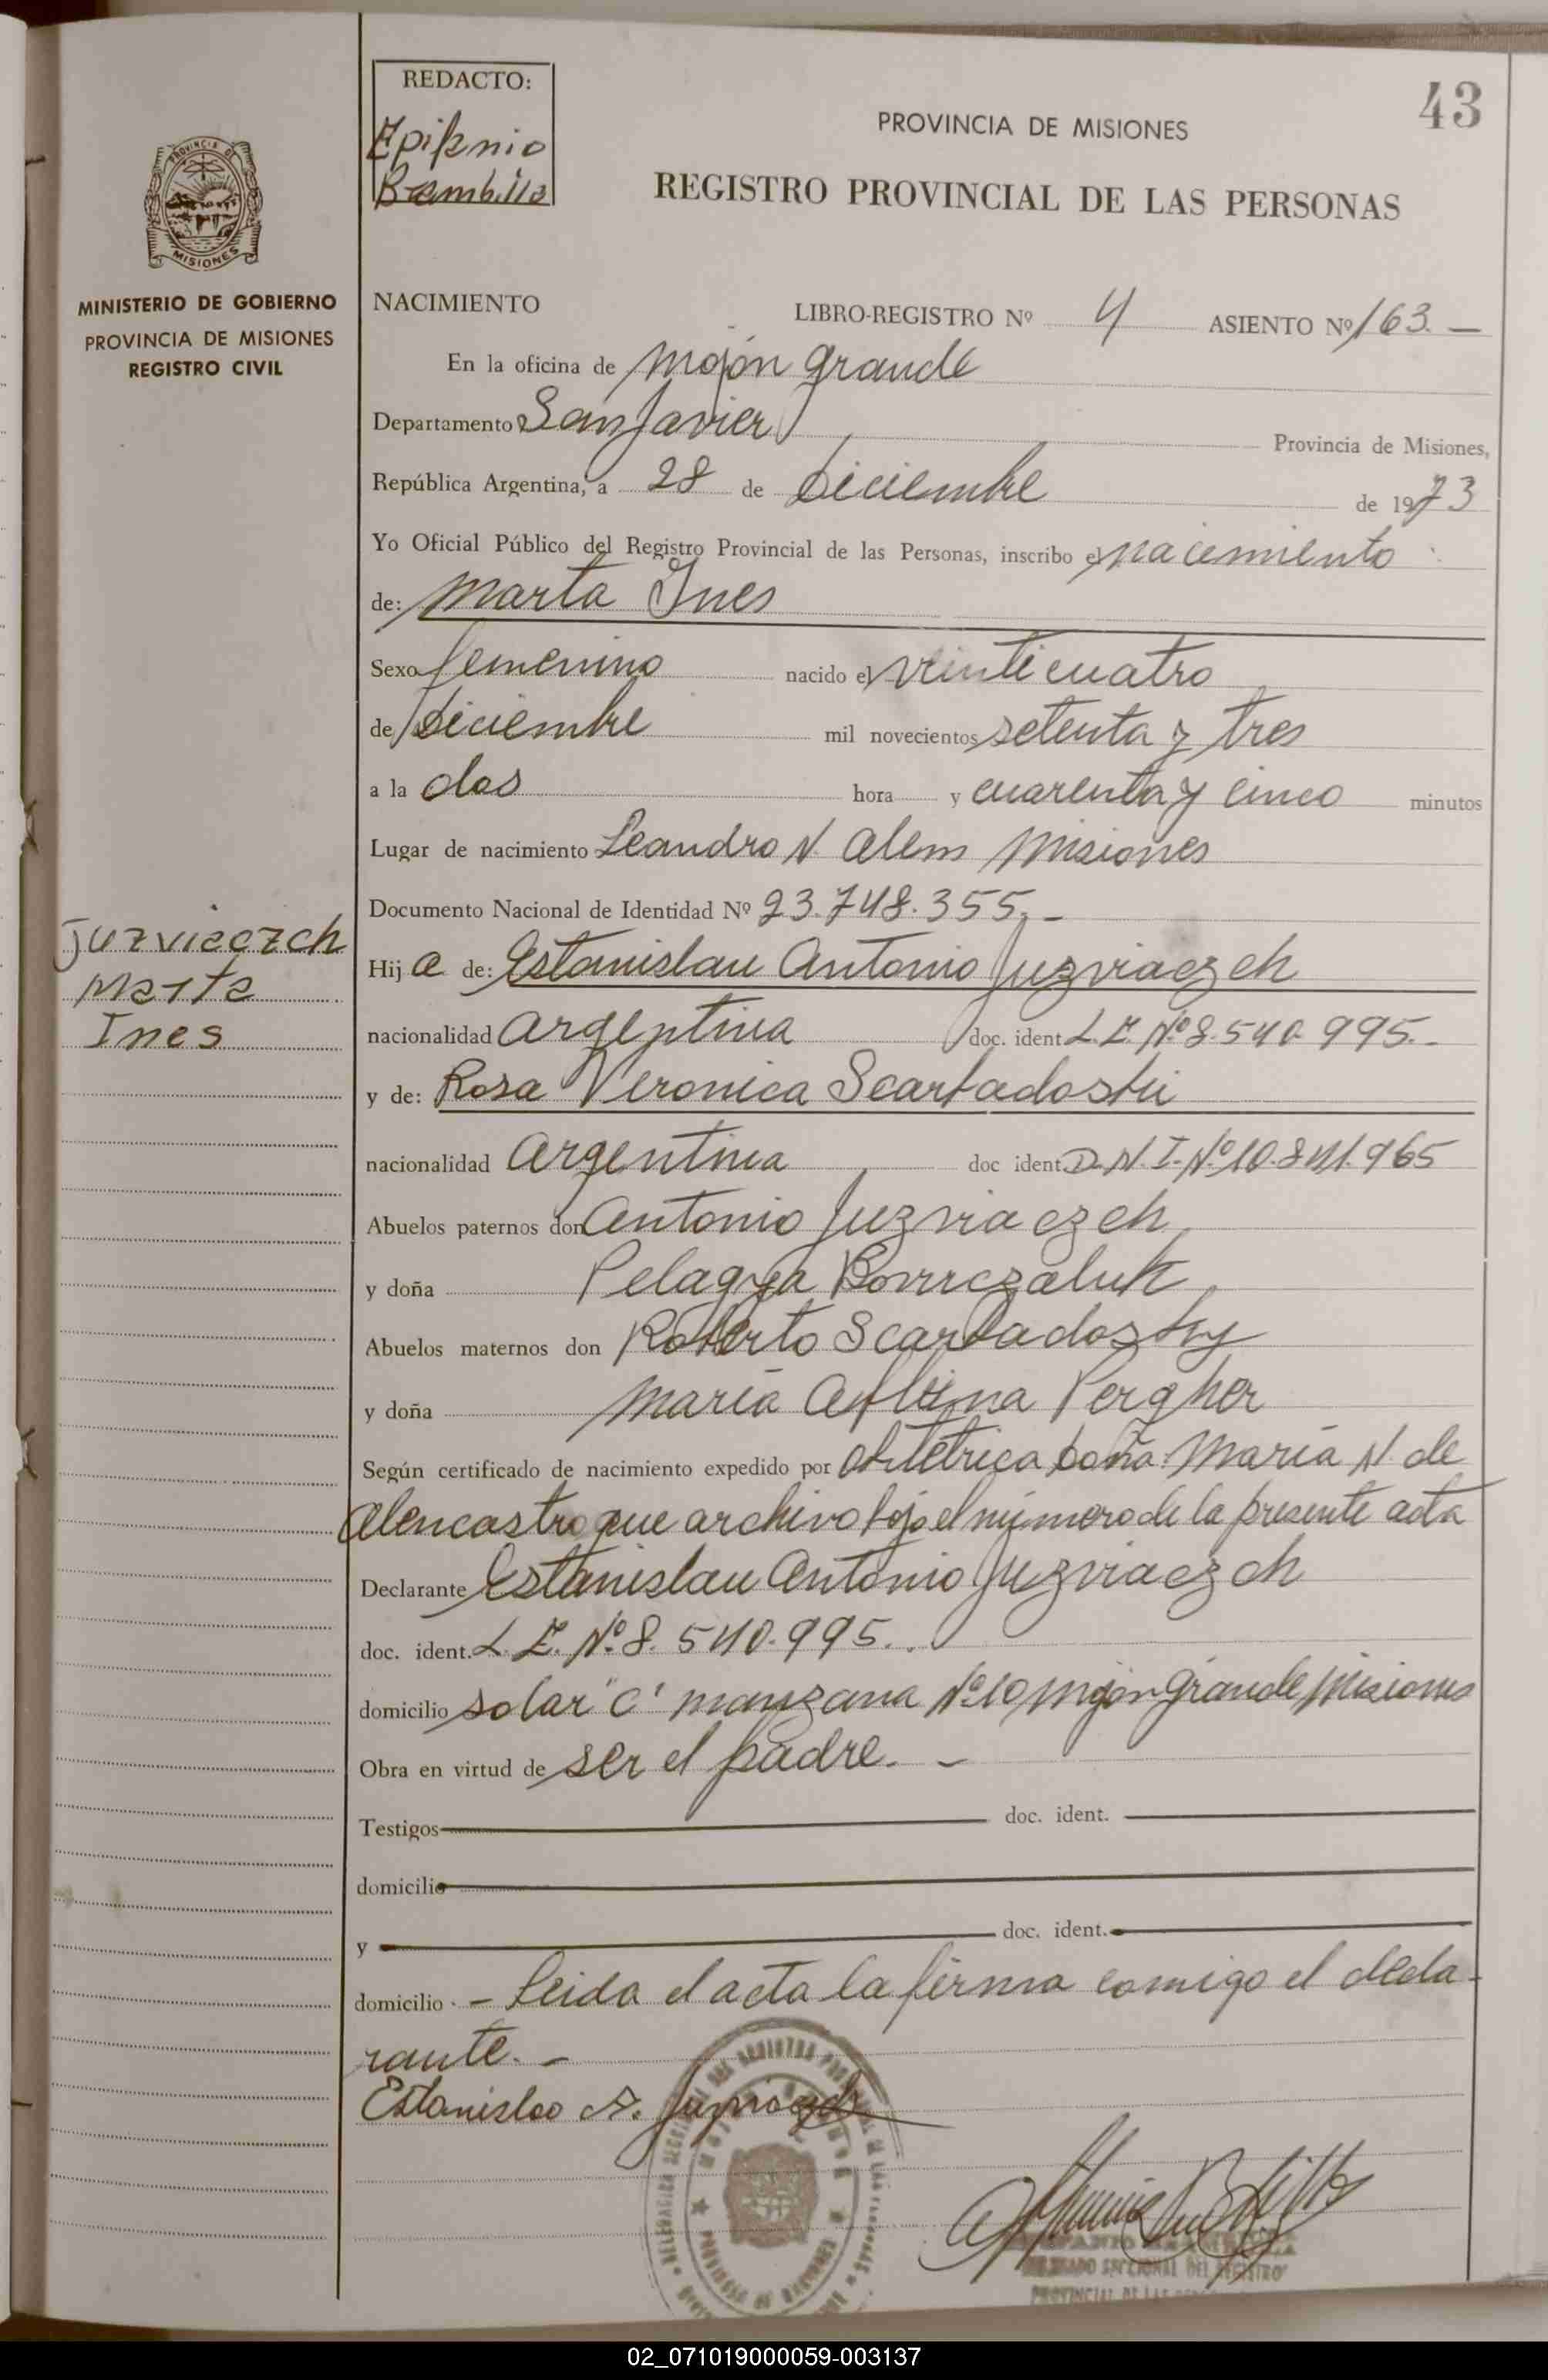 43
REDACTO:
Epifanio
Bambilla
PROVINCIA DE MISIONES
REGISTRO PROVINCIAL DE LAS PERSONAS
PROVINCIA DE
MISIONES
MINISTERIO DE GOBIERNO
PROVINCIA DE MISIONES
REGISTRO CIVIL
NACIMIENTO LIBRO-REGISTRO Nº 4 ASIENTO Nº 163. —
En la oficina de Mojón Grande
Departamento San Javier Provincia de Misiones,
República Argentina, a 28 de Diciembre de 1973
Yo Oficial Público del Registro Provincial de las Personas, inscribo el nacimiento
de: Marta Ines
Sexo femenino nacido el veinticuatro
de Diciembre mil novecientos setenta y tres
a la dos hora y cuarenta y cinco minutos
Lugar de nacimiento Leandro N. Alem Misiones
Documento Nacional de Identidad Nº 23.748.355. -
Juzviaczch
Marta
Ines
Hij a de: Estanislau Antonio Juzviaczch
nacionalidad Argentina doc. ident L.E. Nº 8.540.995. -
y de: Rosa Veronica
nacionalidad Argentina doc ident. D.N.I. Nº 10.841.965
Abuelos paternos don Antonio Juzviaczch
y doña Pelagya
Abuelos maternos don Roberto
y doña Maria Pergher
Según certificado de nacimiento expedido por obstétrica doña: Maria N. de
Alencastro que archivo bajo el número de la presente acta
Declarante Estanislau Antonio Juzviaczch
doc. ident. L.E. Nº 8.540.995..
domicilio solar "C" manzana Nº 10 Mojón Grande Misiones
Obra en virtud de ser el padre. -
Testigos doc. ident.
domicilio
y doc. ident.
domicilio. - Leida el acta la firma comigo el decla-
rante. -
Estanislao A. Juzviaczch
02_071019000059-003137